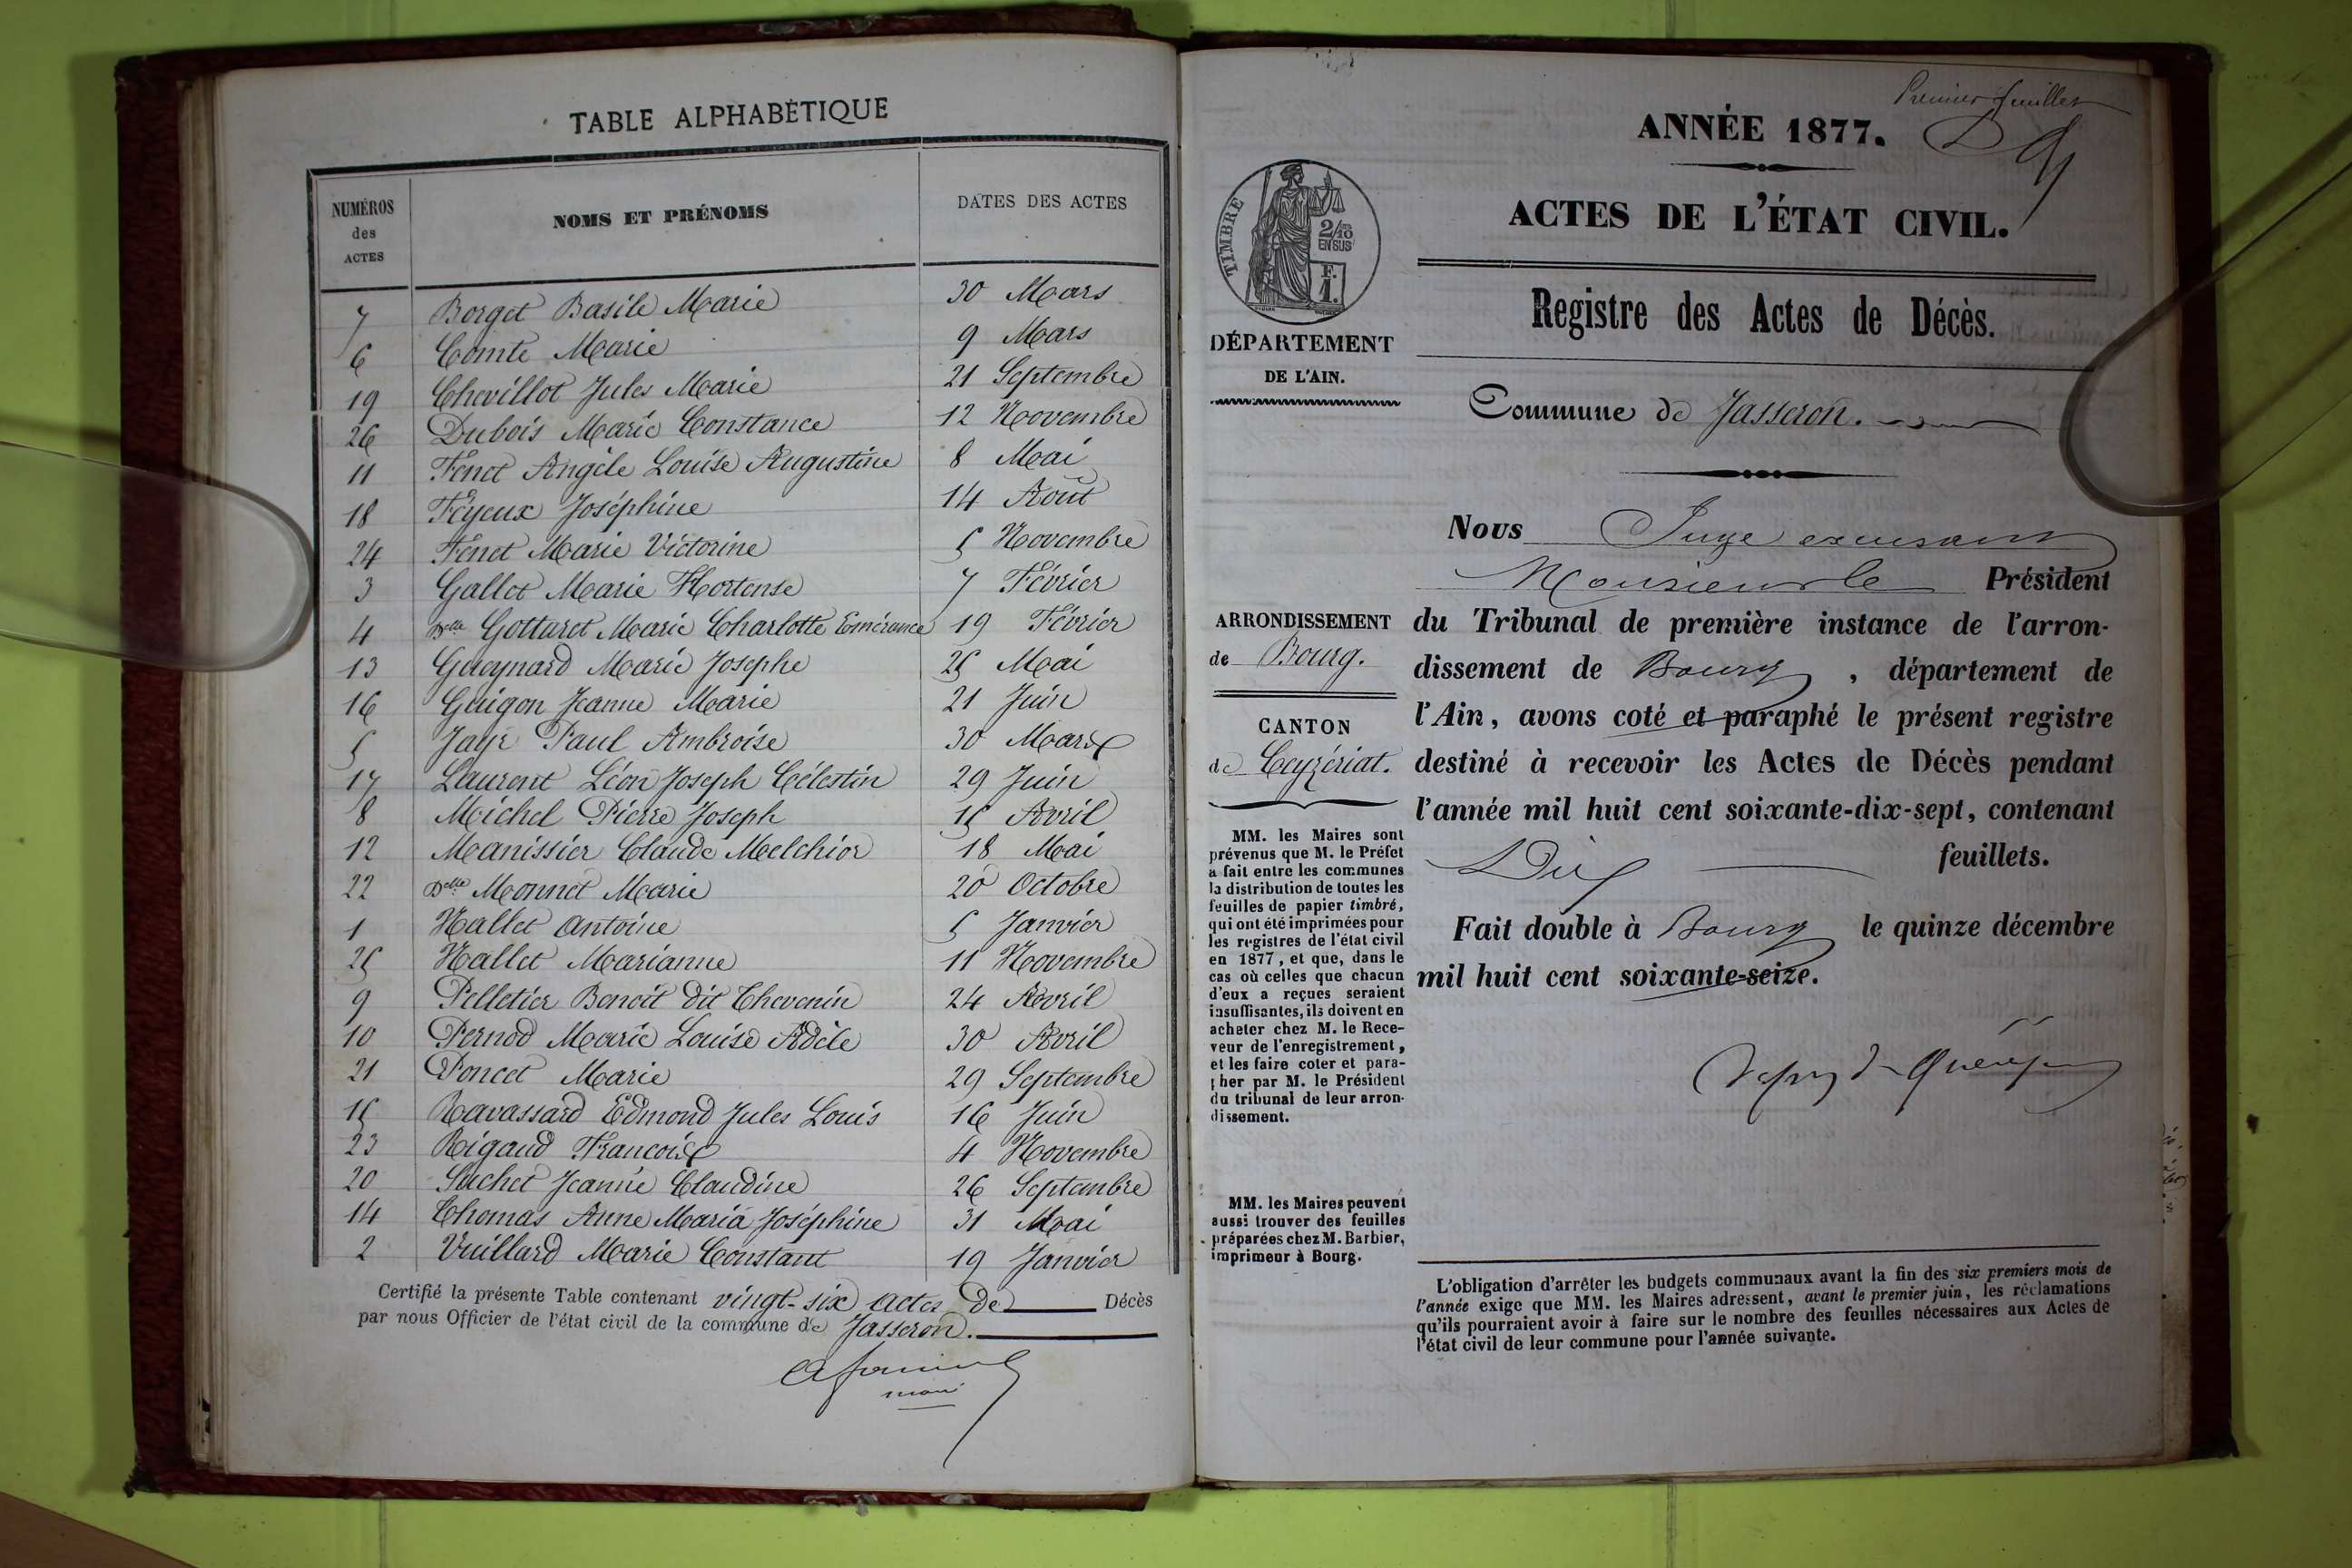 TABLE ALPHABÉTIQUE
NUMÉROS des ACTES | NOMS ET PRÉNOMS | DATES DES ACTES
7 Borget Basile Marie 30 Mars
6 Comte Marie 9 Mars
19 Chevillot Jules Marie 21 Septembre
26 Dubois Marie Constance 12 Novembre
11 Fenet Angèle Louise Augustine 8 Mai
18 Féyeux Joséphine 14 Août
24 Fenet Marie Victorine 5 Novembre
3 Gallet Marie Hortense 7 Février
4 Delle Gottaret Marie Charlotte Emérance 19 Février
13 Gueynard Marie Josephe 25 Mai
16 Guigon Jeanne Marie 21 Juin
5 Jayr Paul Ambroise 30 Mars
17 Laurent Léon Joseph Célestin 29 Juin
8 Michel Pierre Joseph 15 Avril
12 Manissier Claude Melchior 18 Mai
22 Delle Monnet Marie 20 Octobre
1 Nallet Antoine 5 Janvier
25 Nallet Marianne 11 Novembre
9 Pelletier Benoit dit Chevenin 24 Avril
10 Pernod Marie Louise Adèle 30 Avril
21 Poncet Marie 29 Septembre
15 Ravassard Edmond Jules Louis 16 Juin
23 Rigaud François 4 Novembre
20 Suchet Jeanne Claudine 26 Septembre
14 Thomas Anne Maria Joséphine 31 Mai
2 Vuillard Marie Constant 19 Janvier
Certifié la présente Table contenant vingt-six actes de Décès
par nous Officier de l'état civil de la commune de Jasseron.
Premier feuillet
ANNÉE 1877.
ACTES DE L'ÉTAT CIVIL.
TIMBRE
2/10 EN SUS
F. 1.
Registre des Actes de Décès.
DÉPARTEMENT
DE L'AIN.
Commune de Jasseron.
Nous Juge excusant
Monsieur le Président
ARRONDISSEMENT
de Bourg.
CANTON
de Ceyzériat.
du Tribunal de première instance de l'arron-
dissement de Bourg, département de
l'Ain, avons coté et paraphé le présent registre
destiné à recevoir les Actes de Décès pendant
l'année mil huit cent soixante-dix-sept, contenant
Dix feuillets.
Fait double à Bourg le quinze décembre
mil huit cent soixante-seize.
MM. les Maires sont
prévenus que M. le Préfet
a fait entre les communes
la distribution de toutes les
feuilles de papier timbré,
qui ont été imprimées pour
les registres de l'état civil
en 1877, et que, dans le
cas où celles que chacun
d'eux a reçues seraient
insuffisantes, ils doivent en
acheter chez M. le Rece-
veur de l'enregistrement,
et les faire coter et para-
pher par M. le Président
du tribunal de leur arron-
dissement.
MM. les Maires peuvent
aussi trouver des feuilles
préparées chez M. Barbier,
imprimeur à Bourg.
L'obligation d'arrêter les budgets communaux avant la fin des six premiers mois de
l'année exige que MM. les Maires adressent, avant le premier juin, les réclamations
qu'ils pourraient avoir à faire sur le nombre des feuilles nécessaires aux Actes de
l'état civil de leur commune pour l'année suivante.